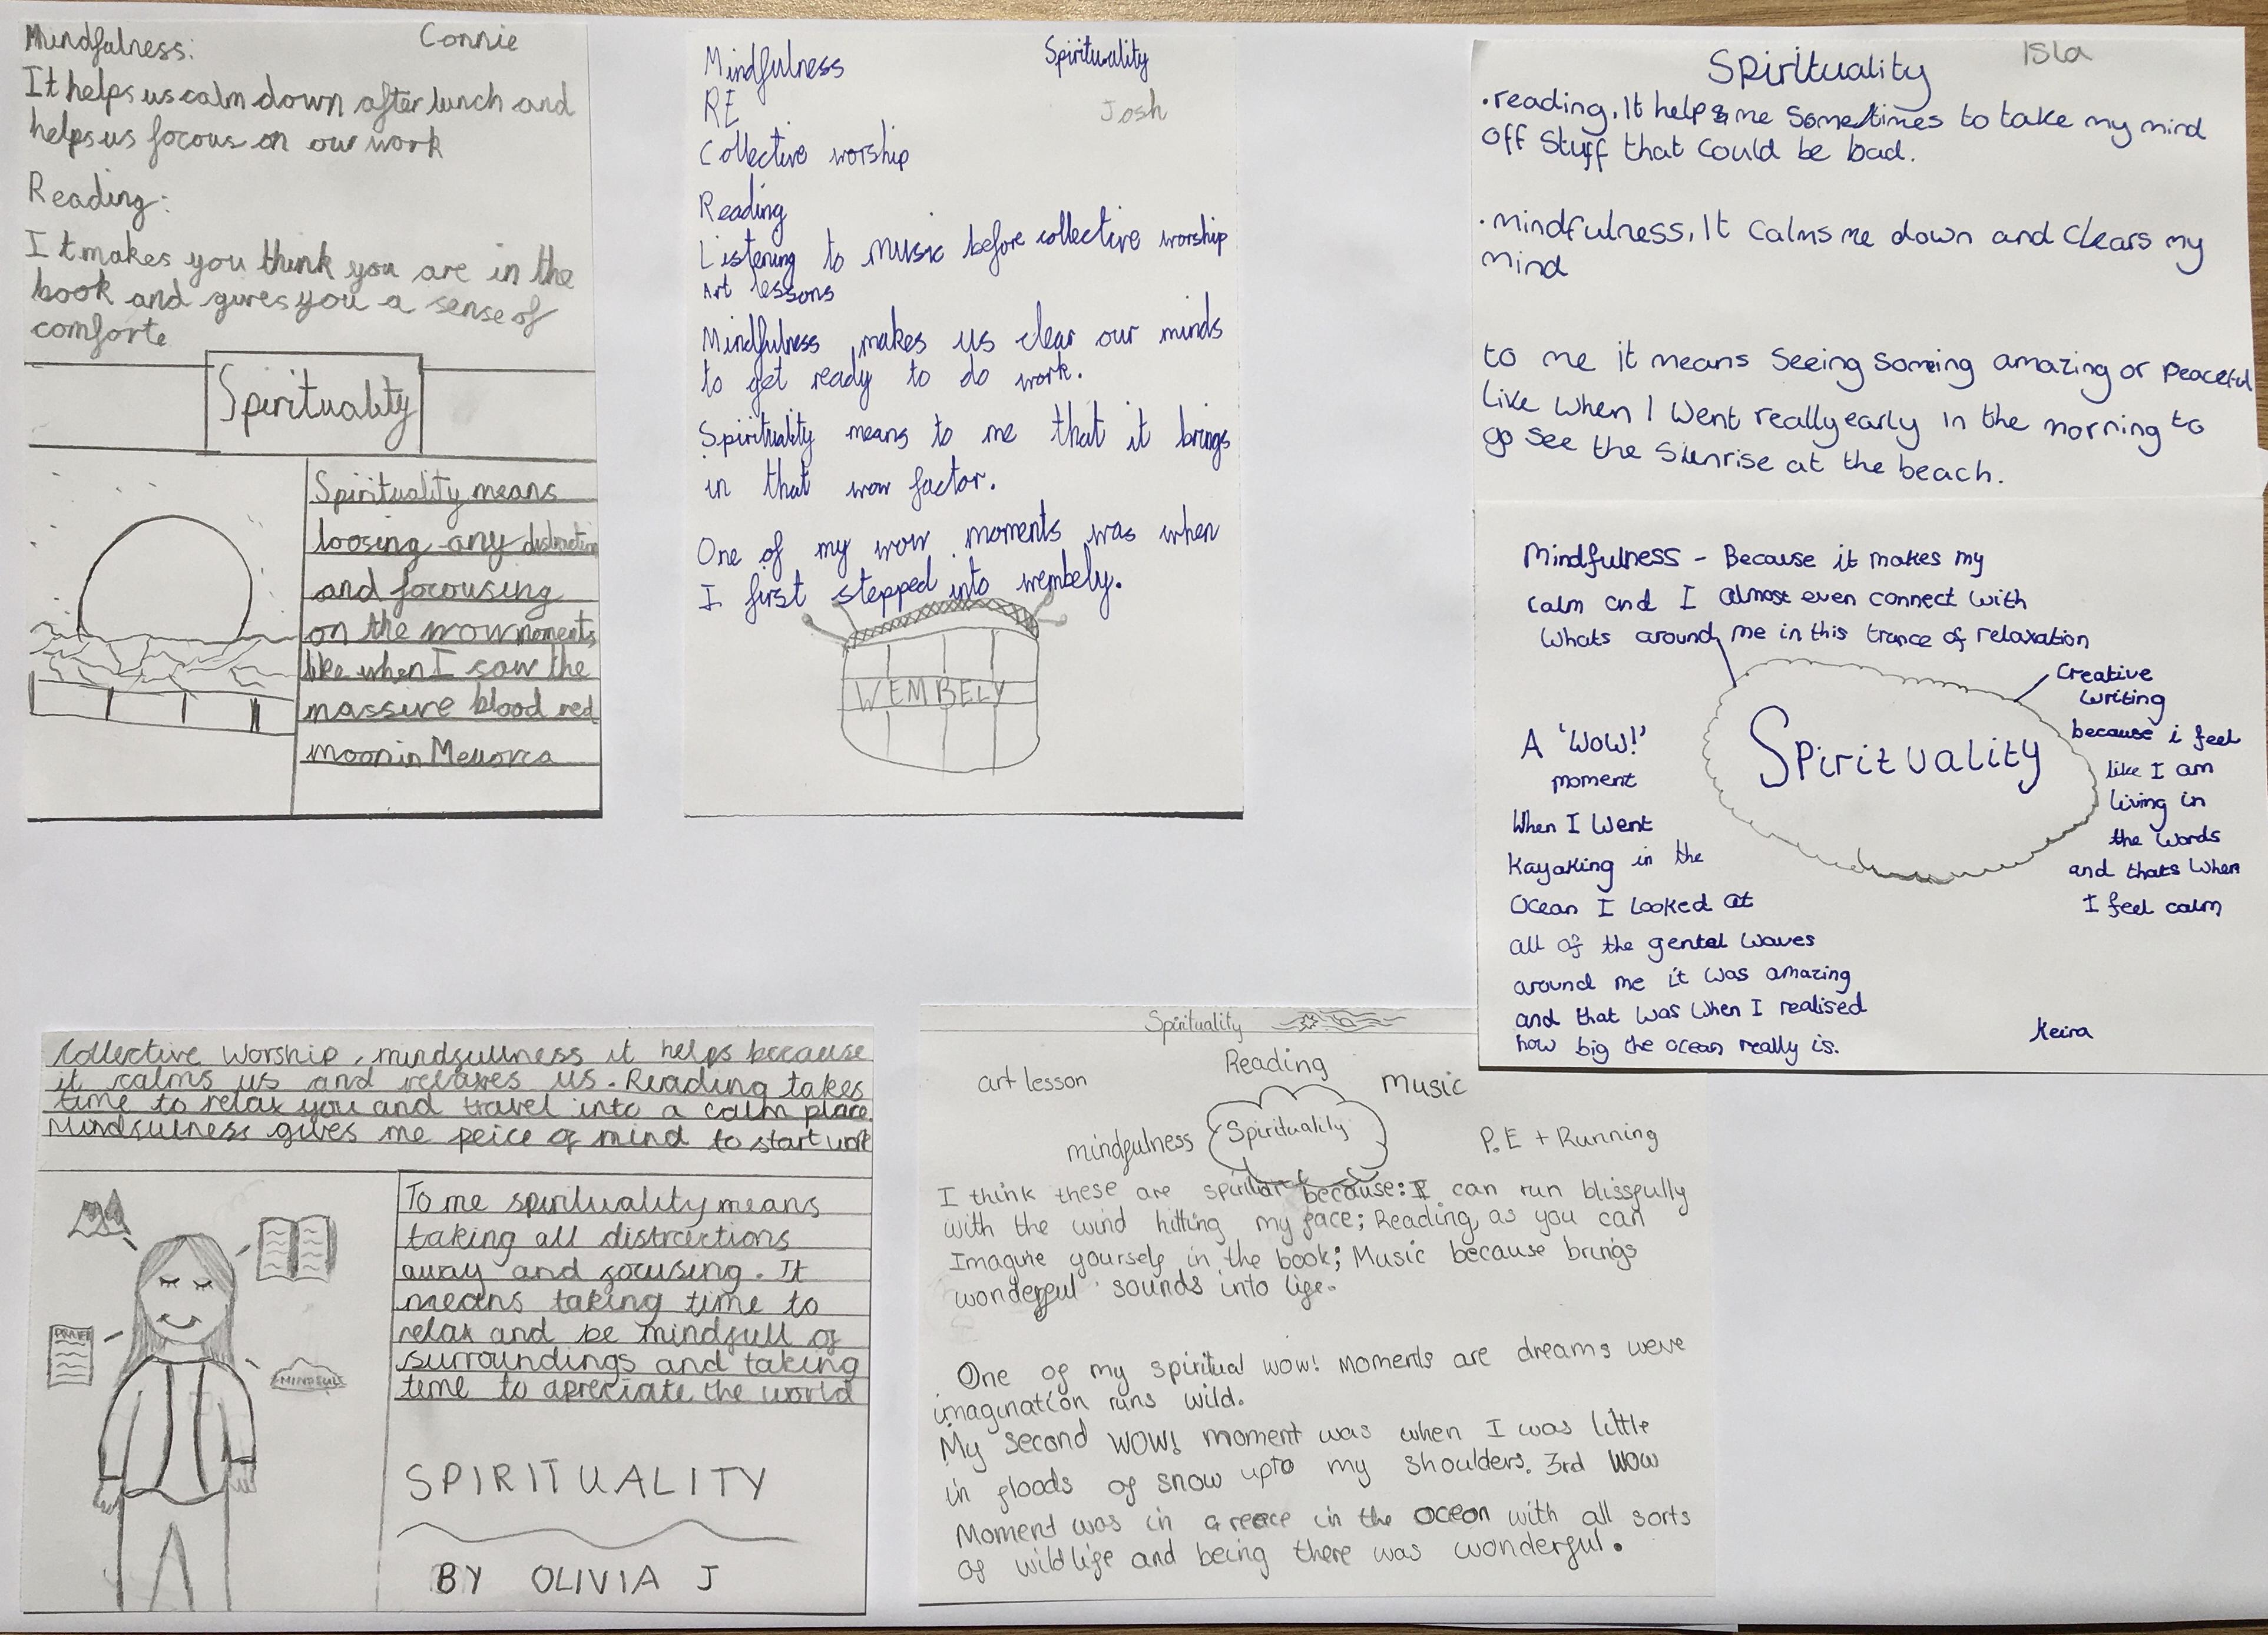 Mindfulness:
Connie
It helps us calm down after lunch and
helps us focous on our work
Reading:
It makes you think you are in the
book and gives you a sense of
comforte
Spirituality
Spirituality means
loosing any distraction
and focousing
on the wow moments
like when I saw the
massive blood red
moon in Menorca
Mindfulness
Spirituality
RE
Josh
Collective worship
Reading
Listening to music before collective worship
Art lessons
Mindfulness makes us clear our minds
to get ready to do work.
Spirituality means to me that it brings
in that wow factor.
One of my wow moments was when
I first stepped into wembely.
WEMBELY
Spirituality
Isla
• reading, It helps me Sometimes to take my mind
off stuff that could be bad.
• mindfulness, It calms me down and clears my
mind
to me it means seeing someing amazing or peaceful
like when I went really early in the morning to
go see the sunrise at the beach.
Mindfulness - Because it makes my
calm and I almost even connect with
whats around me in this trance of relaxation
Spirituality
Creative
writing
because i feel
like I am
living in
the words
and thats when
I feel calm
A 'WOW!'
moment
When I went
Kayaking in the
Ocean I looked at
all of the gentel waves
around me it was amazing
and that was when I realised
how big the ocean really is.
Keira
Collective Worship, mindfullness it helps because
it calms us and relaxes us. Reading takes
time to relax you and travel into a calm place.
Mindfulness gives me peice of mind to start work
PRAYER
MINDFULL
To me spirituality means
taking all distractions
away and focusing. It
means taking time to
relax and be mindfull of
surroundings and taking
time to apreciate the world
SPIRITUALITY
BY OLIVIA J
Spirituality
Reading
art lesson
Music
mindfulness
Spirituality
P.E + Running
I think these are because: I can run blissfully
with the wind hitting my face; Reading, as you can
Imagine yourself in the book; Music because brings
wonderful sounds into life.
One of my spiritual wow! Moments are dreams were
imagination runs wild.
My second WOW! moment was when I was little
in floods of snow upto my shoulders. 3rd wow
Moment was in Greece in the ocean with all sorts
of wildlife and being there was wonderful.